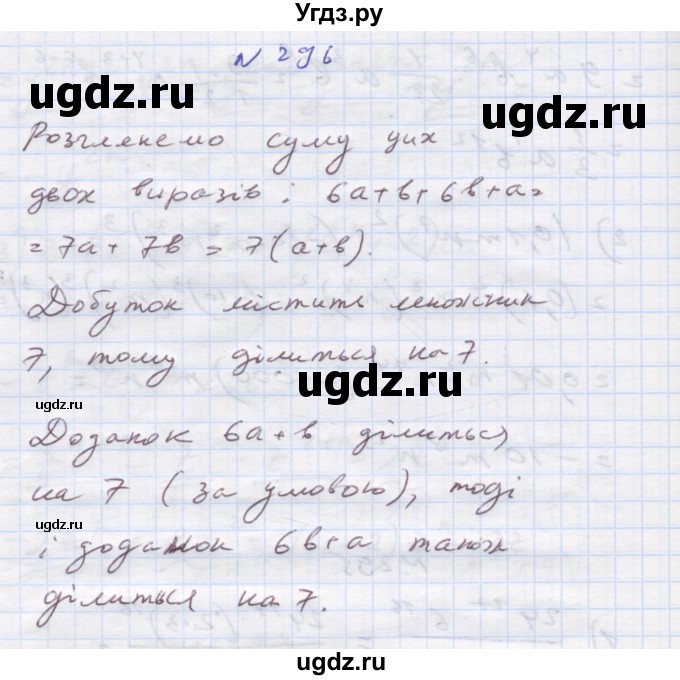 Угдз.ру
N 296
ugdz.ru
ugdz.ru
Розглянемо суму цих
двох виразів: 6a+b+6b+a=
=7a+7b=7(a+b).
Добуток містить множник
7, тому ділиться на 7.
ugdz.ru
ugdz.ru
Доданок 6a+b ділиться
на 7 (за умовою), тоді
ugdz.ru
і доданок 6b+a також
ділиться на 7.
ugdz.ru